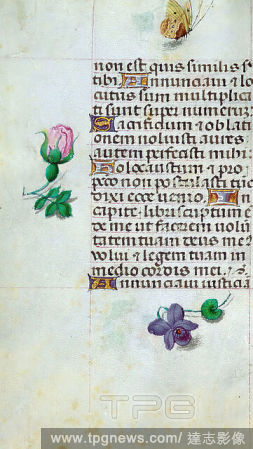 non est quis similis s
tibi Annunciaui & lo
cutus sum multiplica
ti sunt super numerum
Sacrificium & oblati
onem noluisti aures
autem perfecisti mihi
Holocaustum & pro
peccato non postulasti tūc
dixi ecce uenio In
capite libri scriptum ē
de me ut facerem uolū
tatem tuam deus me9
uolui & legem tuam in
medio cordis mei
Annunciaui iusticiā
TPG
www.tpgnews.com/達志影像